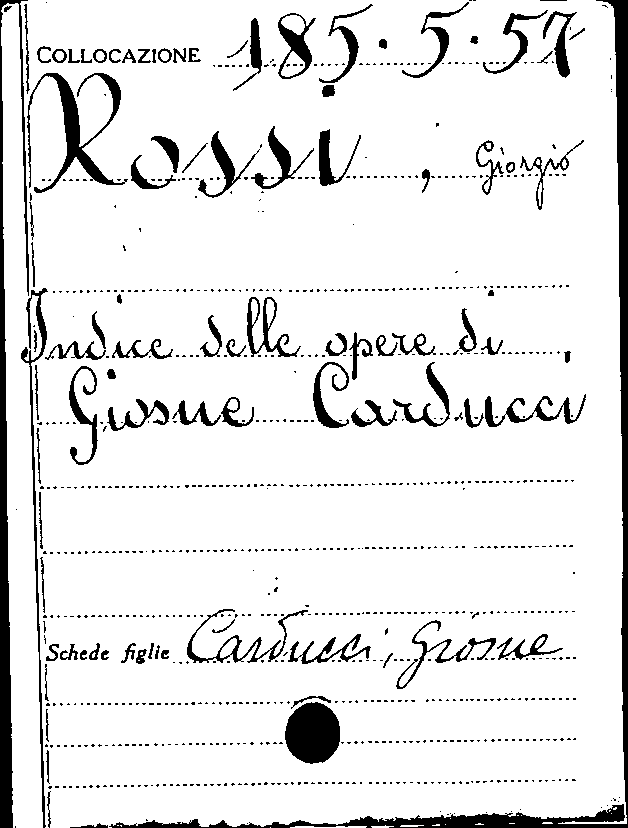 COLLOCAZIONE 185.5.57
Rossi, Giorgio
Indice delle opere di
Giosue Carducci
Schede figlie Carducci, Giosue